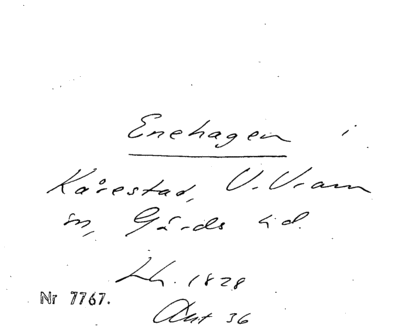 Enehagen i
Kårestad, V. Vram
sn, Gärds hd.
Lh. 1828
Nr 7767.
Akt 36